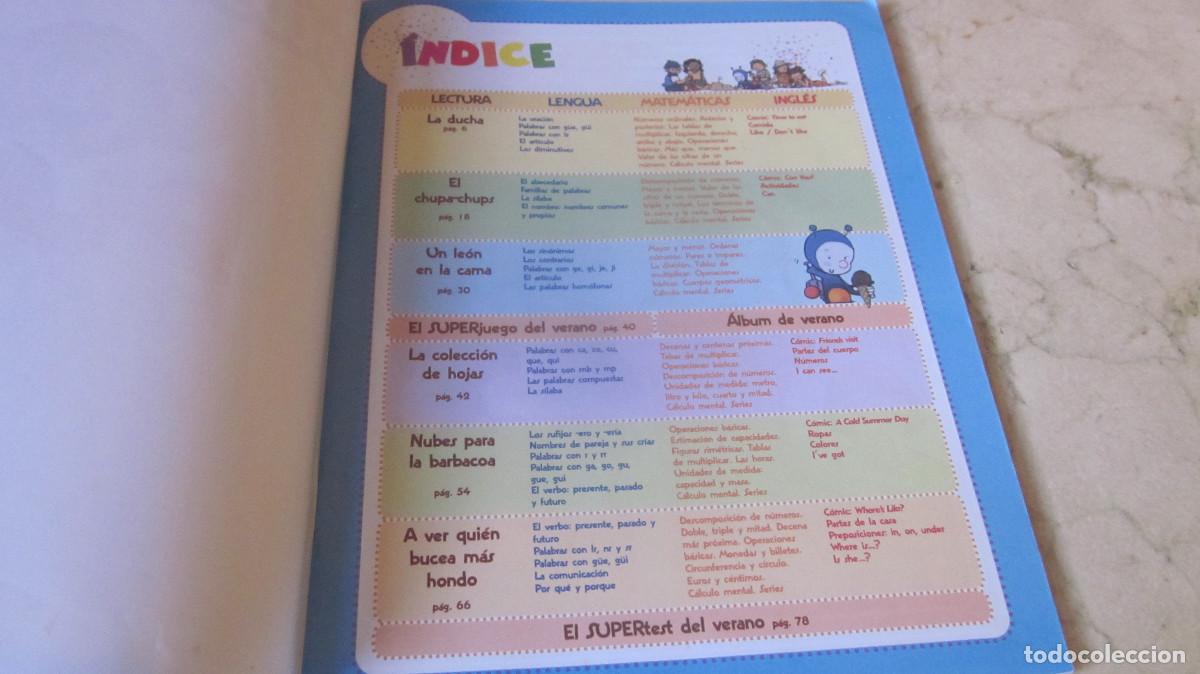 ÍNDICE
LECTURA LENGUA MATEMÁTICAS INGLÉS
La ducha
pág. 6
La oración
Palabras con güe, güi
Palabras con lr
El artículo
Los diminutivos
Números ordinales. Anterior y
posterior. Las tablas de
multiplicar. Izquierda, derecha,
arriba y abajo. Operaciones
básicas. Más que, menos que.
Valor de las cifras de un
número. Cálculo mental. Series
Cómic: Time to eat
Comida
Like / Don't like
El
chupa-chups
pág. 18
El abecedario
Familias de palabras
La sílaba
El nombre: nombres comunes
y propios
Descomposición de números.
Mayor y menor. Valor de las
cifras de un número. Doble,
triple y mitad. Los términos de
la suma y la resta. Operaciones
básicas. Cálculo mental. Series
Cómic: Can You?
Actividades
Can
Un león
en la cama
pág. 30
Los sinónimos
Los contrarios
Palabras con ge, gi, je, ji
El artículo
Las palabras homófonas
Mayor y menor. Ordenar
números. Pares e impares.
La división. Tablas de
multiplicar. Operaciones
básicas. Cuerpos geométricos.
Cálculo mental. Series
El SUPERjuego del verano pág. 40
Álbum de verano
La colección
de hojas
pág. 42
Palabras con ca, co, cu,
que, qui
Palabras con mb y mp
Las palabras compuestas
La sílaba
Decenas y centenas próximas.
Tabas de multiplicar.
Operaciones básicas.
Descomposición de números.
Unidades de medida: metro,
litro y kilo, cuarto y mitad.
Cálculo mental. Series
Cómic: Friends visit
Partes del cuerpo
Números
I can see...
Nubes para
la barbacoa
pág. 54
Los sufijos -ero y -ería
Nombres de pareja y sus crías
Palabras con r y rr
Palabras con ga, go, gu,
gue, gui
El verbo: presente, pasado
y futuro
Operaciones básicas.
Estimación de capacidades.
Figuras simétricas. Tablas
de multiplicar. Las horas.
Unidades de medida:
capacidad y masa.
Cálculo mental. Series
Cómic: A Cold Summer Day
Ropas
Colores
I've got
A ver quién
bucea más
hondo
pág. 66
El verbo: presente, pasado y
futuro
Palabras con lr, nr y sr
Palabras con güe, güi
La comunicación
Por qué y porque
Descomposición de números.
Doble, triple y mitad. Decena
más próxima. Operaciones
básicas. Monedas y billetes.
Circunferencia y círculo.
Euros y céntimos.
Cálculo mental. Series
Cómic: Where's Lila?
Partes de la casa
Preposiciones: in, on, under
Where is...?
Is she...?
El SUPERtest del verano pág. 78
todocoleccion